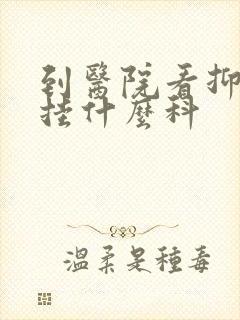 到醫院看抑
挂什麼科
温柔是種毒